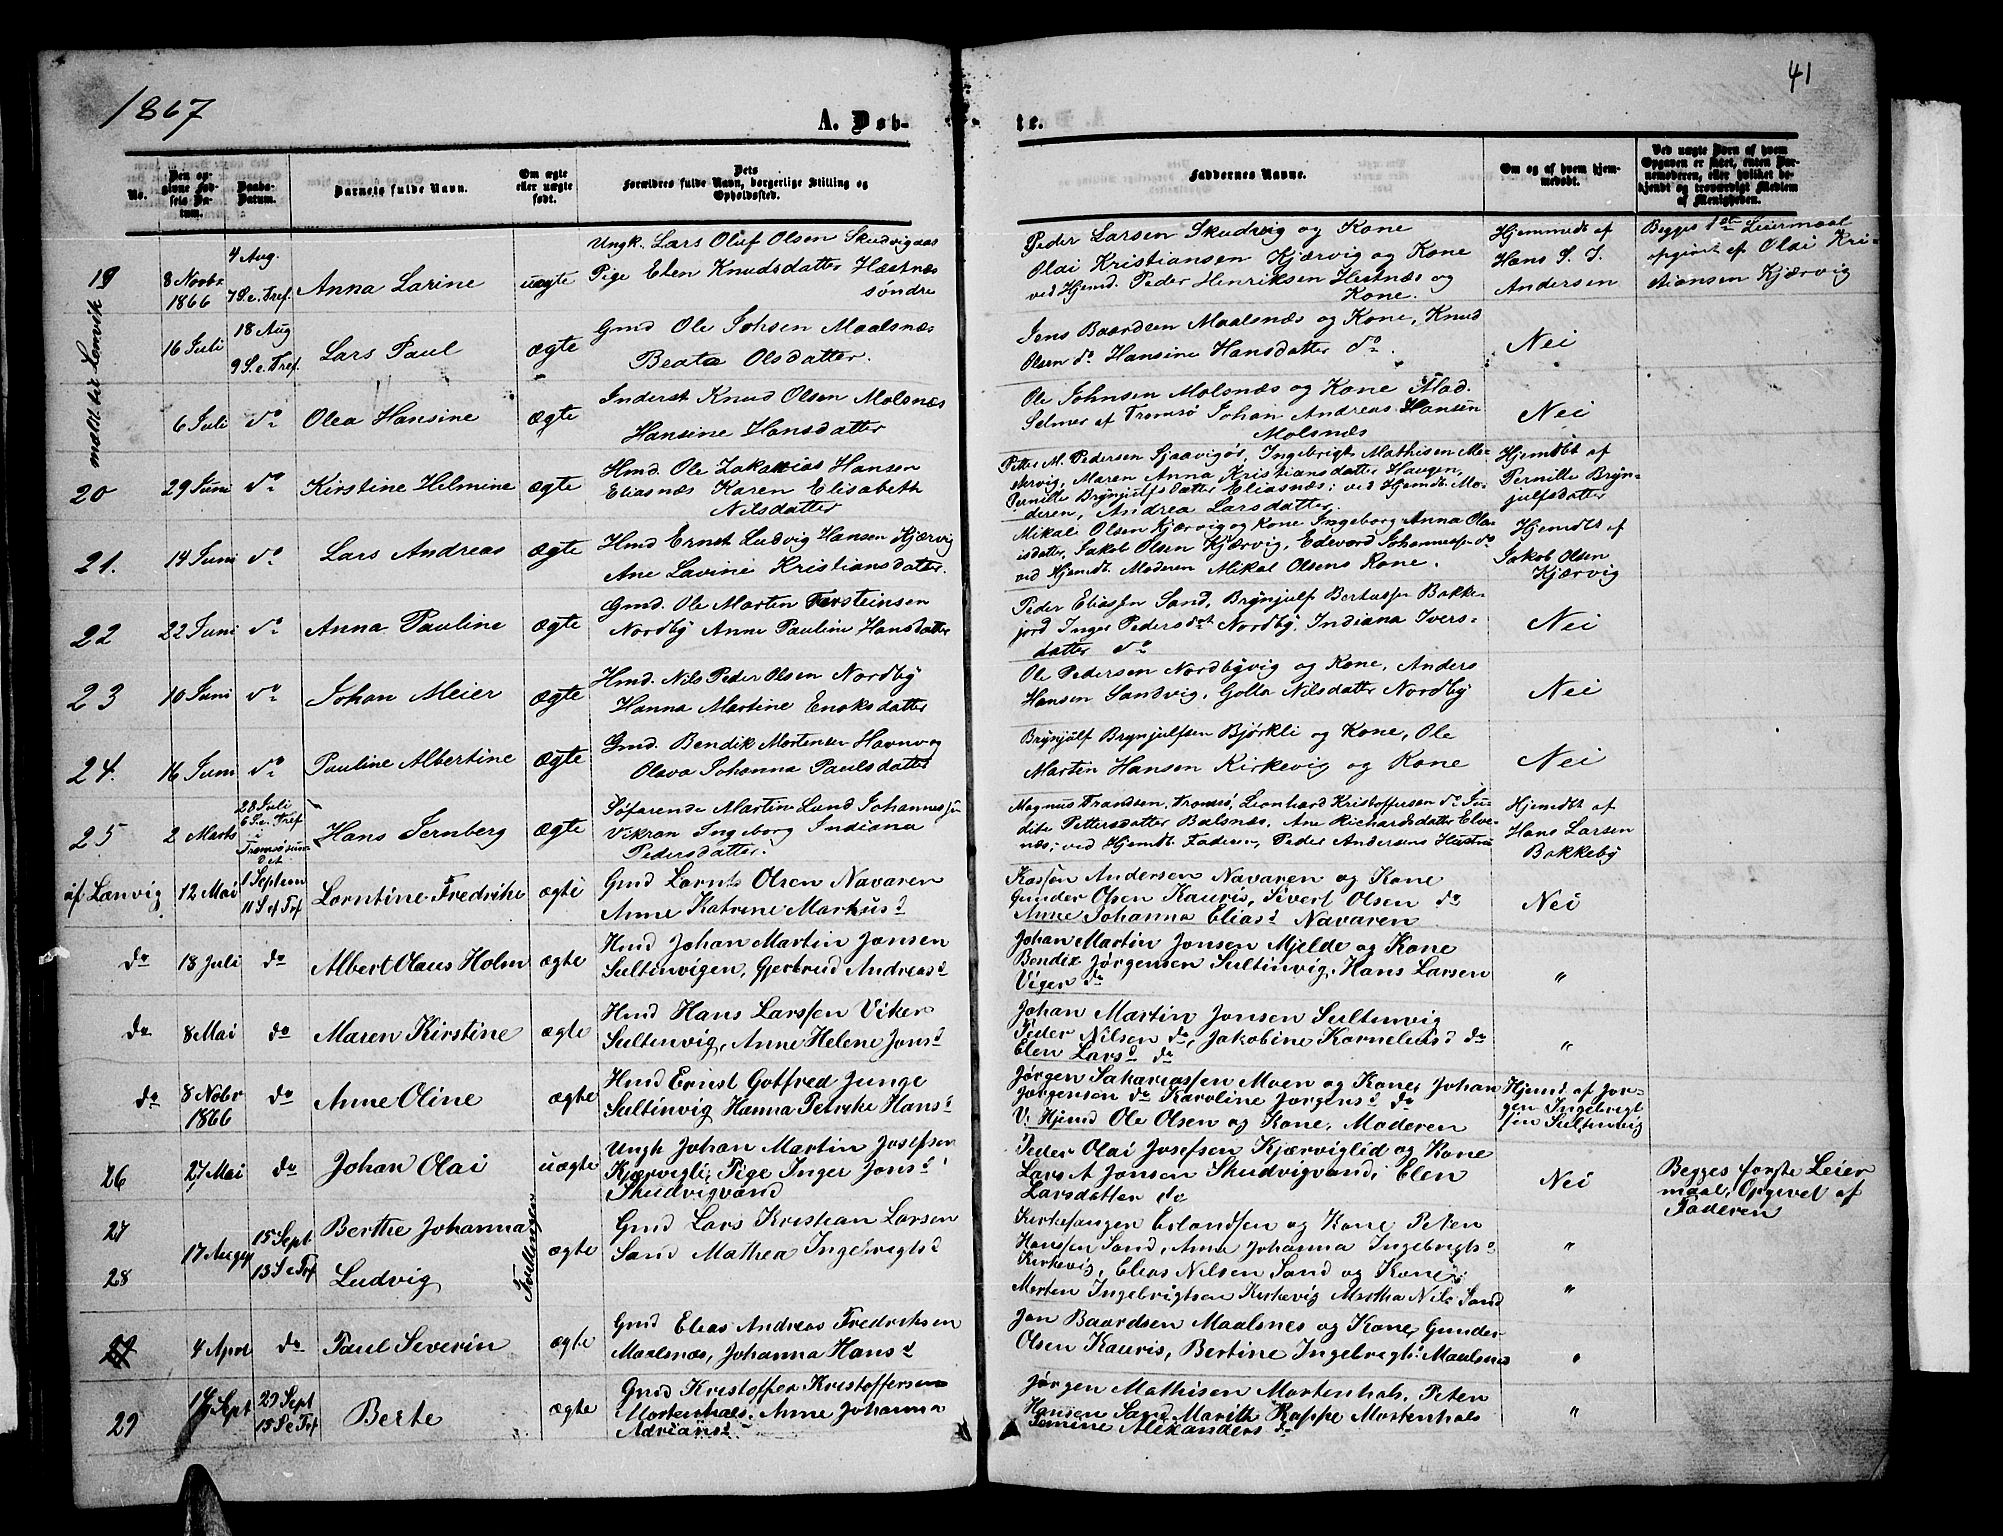 1867
41
A. Døb-
te.
No.
Den op-
givne Fød-
sels Da-
tum.
Daabs-
Datum.
Barnets fulde Navn.
Om ægte
eller uægte
født.
Dets
Forældres fulde Navn, borgerlige Stilling og
Opholdssted.
Faddernes Navne.
Om og af hvem hjem-
medøbt.
Ved uægte Børn af hvem
Opgaven er skeet, enten Bar-
nemoderen, eller hvilket be-
kjendt og troværdigt Medlem
af Menigheden.
19
8 Novbr
1866
4 Aug.
7 S. e. Tref.
Anna Larine
uægte
Ungk. Lars Oluf Olsen Skudvigaas
Pige Elen Knudsdatter Hæstnæs
søndre
Peder Larsen Skudvig og Kone
Olai Kristiansen Kjærvig og Kone
ved Hjemd. Peder Henriksen Hestnæs og
Kone.
Hjemmedt af
Hans P. J.
Andersen
Begges 1ste Leiermaal
opgivet af Olai Kri-
stiansen Kjærvig
16 Juli
18 Aug
9 S. e. Tref.
Lars Paul
ægte
Gmd Ole Johsen Maalsnæs
Beata Olsdatter.
Jens Baardsen Maalsnæs og Kone, Knud
Olsen do Hansine Hansdatter do.
Nei
6 Juli
do
Olea Hansine
ægte
Inderst Knud Olsen Molsnæs
Hansine Hansdatter
Ole Johnsen Molsnæs og Kone Mad.
Selmer af Tromsø Johan Andreas Hansen
Molsnæs
Nei
20
29 Juni
do
Kirstine Helmine
ægte
Hmd. Ole Zakarias Hansen
Eliasnæs Karen Elisabeth
Nilsdatter
Petter M. Pedersen Sjaavigør, Ingebrigt Mathisen Me-
stervig, Maren Anna Kristiansdatter Haugen,
Pernille Brynjulfsdatter Eliasnæs; ved Hjemdt. Mo-
deren, Andrea Larsdatter.
Hjemdbt af
Pernille Bryn-
julfsdatter
21.
14 Juni
do
Lars Andreas
ægte
Hmd Ernst Ludvig Hansen Kjærvig
Ane Lavine Kristiansdatter.
Mikal Olsen Kjærvig og Kone Ingeborg Anna Ola-
isdatter, Jakob Olsen Kjærvig, Edevard Johannessen do
ved Hjemdt. Moderen Mikal Olsens Kone.
Hjemdbt af
Jakob Olsen
Kjærvig
22
22 Juni
do
Anna Pauline
ægte
Gmd. Ole Martin Torsteinsen
Nordby Anne Pauline Hansdatter
Peder Eliassen Sand, Brynjulf Bertussen Bakke-
jord Inger Pedersdt Nordby, Indiana Ivers-
datter do
Nei
23
10 Juni
do
Johan Meier
ægte
Hmd. Nils Peder Olsen Nordby
Hanna Martine Enoksdatter
Ole Pedersen Nordbyvig og Kone, Anders
Hansen Sandvig, Golla Nilsdatter Nordby
Nei
24.
16 Juni
do
Pauline Albertine
ægte
Gmd. Bendik Mortensen Havnvog
Olava Johanna Paulsdatter
Brynjulf Brynjulfsen Bjørkli og Kone, Ole
Martin Hansen Kirkevig og Kone
Nei
25
2 Marts
28 Juli
6 S. e. Tref
i
Tromsøsun-
det
Hans Jernberg
ægte
Søfarende Martin Lund Johannessen
Vikran Ingeborg Indiana
Pedersdatter.
Magnus Frandsen, Tromsø, Leonhard Kristoffersen do Ju-
dite Pettersdatter Balsnæs, Ane Richardsdatter Elve-
næs; ved Hjemdt. Faderen, Peder Andersens Hustru
Hjemdbt af
Hans Larsen
Bakkeby
af Lænvig
12 Mai
1 Septem
11 S ef Trf
Lorntine Fredrike
ægte
Gmd Lornts Olsen Navaren
Anne Katrine Markusd
Kassen Andersen Navaren og Kone
Gunder Olsen Kauris, Sivert Olsen do
Anne Johanna Eliasd Navaren
Nei
do
18 Juli
do
Albert Olaus Holm
ægte
Hmd Johan Martin Jonsen
Sultinvigen, Gjertrud Andreasd
Johan Martin Jonsen Mjelde og Kone
Bendix Jørgensen Sultinvig, Hans Larsen
Vigen do
"
do
8 Mai
do
Maren Kirstine
ægte
Hmd Hans Larssen Viken
Sultinvig, Anne Helene Jonsd
Johan Martin Jonsen Sultinvig
Peder Nilsen do, Jakobine Korneliusd do
Elen Larsd do
"
do
8 Nobr
1866
do
Anne Oline
ægte
Hmd Ernst Gotfred Junge
Sultinvig Hanna Petrike Hansd
Jørgen Sakariassen Moen og Kone, Johan
Jørgensen do Karoline Jørgensd do
V. Hjemd Ole Olsen og Kone, Moderen
Hjemd af Jør-
gen Ingebrigt
sen Sultinvig
26
27 Mai
do
Johan Olai
uægte
Ungk Johan Martin Josefsen
Kjærvigli, Pige Inger Jonsd
Skudvigvand
Peder Olai Josefsen Kjærviglid og Kone
Lars A Jonsen Skudvigvand, Elen
Larsdatter do
Nei
Begges første Leier
maal, Opgivet af
Faderen
27
28
17 August
15 Sept
13 S e Trf
Berthe Johanna
Ludvig
Tvillinger
ægte
Gmd Lars Kristian Larsen
Sand Mathea Ingebrigtsd
Kirkesanger Erlandsen og Kone Peten
Hanssen Sand, Anne Johanna Ingebrigtsd
Kirkevig, Elias Nilsen Sand og Kone,
Morten Ingebrigtsen Kirkevig Martha Nils Sand
"
"
4 April
do
Paul Severin
ægte
Gmd Elias Andreas Fredriksen
Maalsnæs, Johanna Hansd
Jon Baardsen Maalsnes og Kone, Gunder
Olsen Kauris, Bertine Ingebrigts Maalsnes
"
29
14 Sept
29 Sept
15 S e Trf
Berte
ægte
Gmd Kristoffer Kristoffersen
Mortenhals, Anne Johanna
Adriansd
Jørgen Mathisen Mortenhals, Peten
Hansen Sand Marith Rappe Mortenhals
Jemine Aleksanders do
"